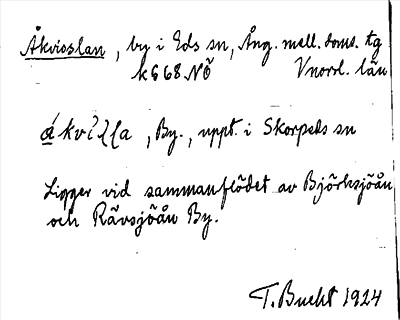 Åkvisslan, by i Eds sn, Ång. mell. doms. tg
k G 68 NÖ Vnorrl. län
By., uppt. i Skorpeds sn
Ligger vid sammanflödet av Björksjöån
och Rävsjöån By.
T. Bucht 1924